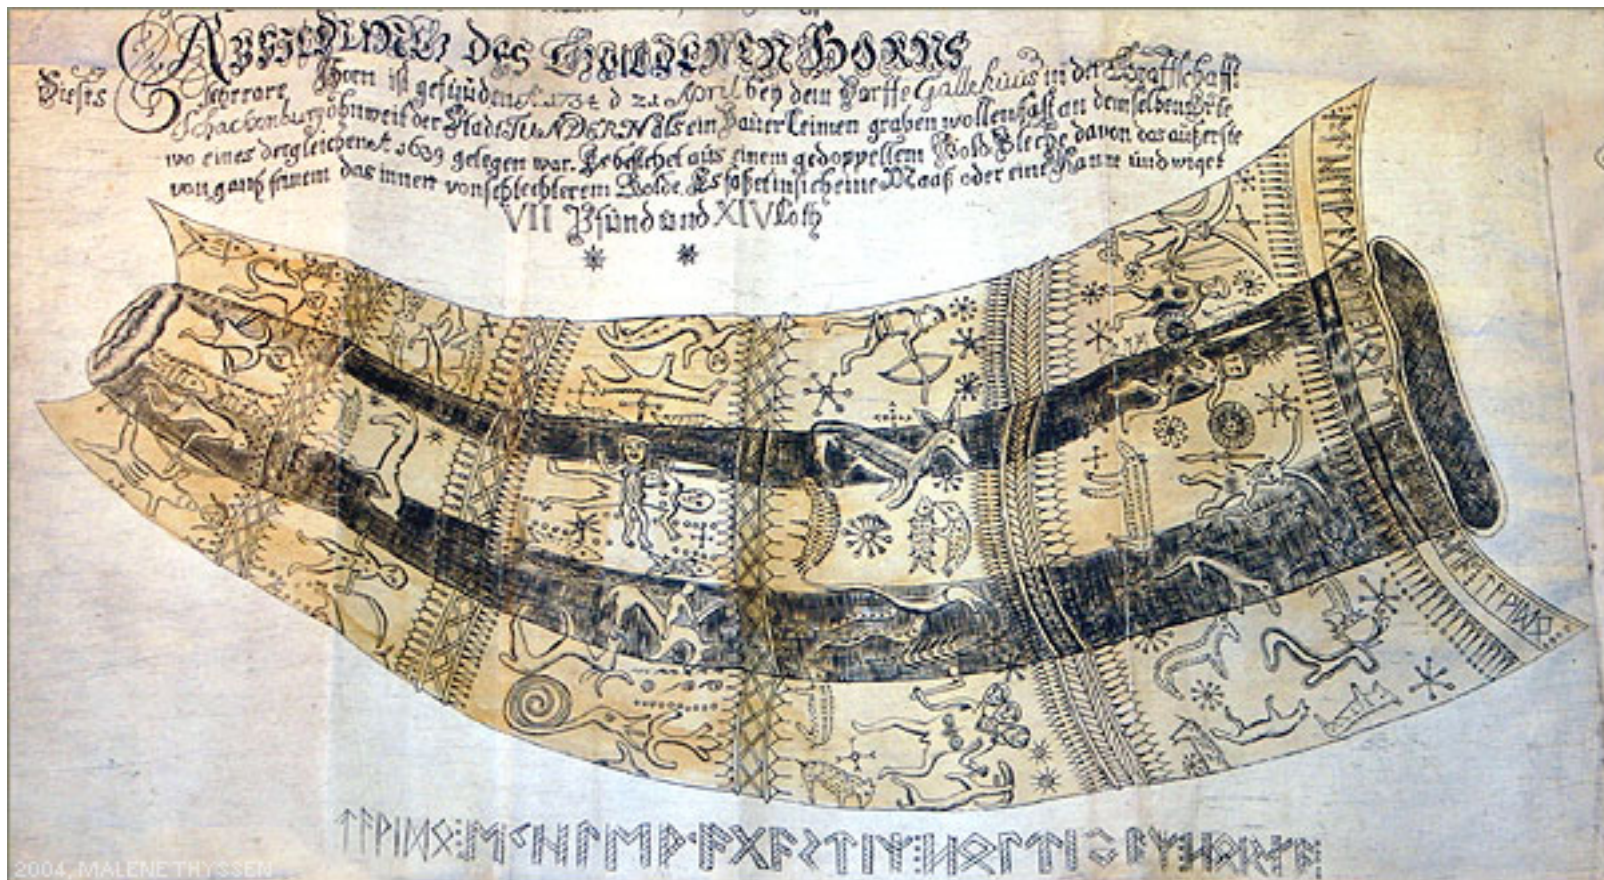 Abbildung des Guldenen Horns
Dieses Sehrrare Horn ist gefunden A. 1734 d 21 April bey dem Dorffe Gallehuus in der Graffschafft
Schackenburg ohnweit der Stadt TUNDERN als ein Bauer Leimen graben wollen fast an demselben Orte
wo eines dergleichen A. 1639 gelegen war. bestehet aus einem gedoppeltem Gold Bleche davon das außerste
von gantz feinem das innere von schlechterem Golde. Es fasset in sich eine Maaß oder eine Kanne und wiget
VII Pfund und XIV Loth
ᛏᚨᚹᛁᛞᛟ⁝ᛖᚲᚺᛚᛖᚹᚨᚷᚨᛊᛏᛁᛉ⁝ᚺᛟᛚᛏᛁᛃᚨᛉ⁝ᚺᛟᚱᚾᚨ⁝
2004, MALENE THYSSEN